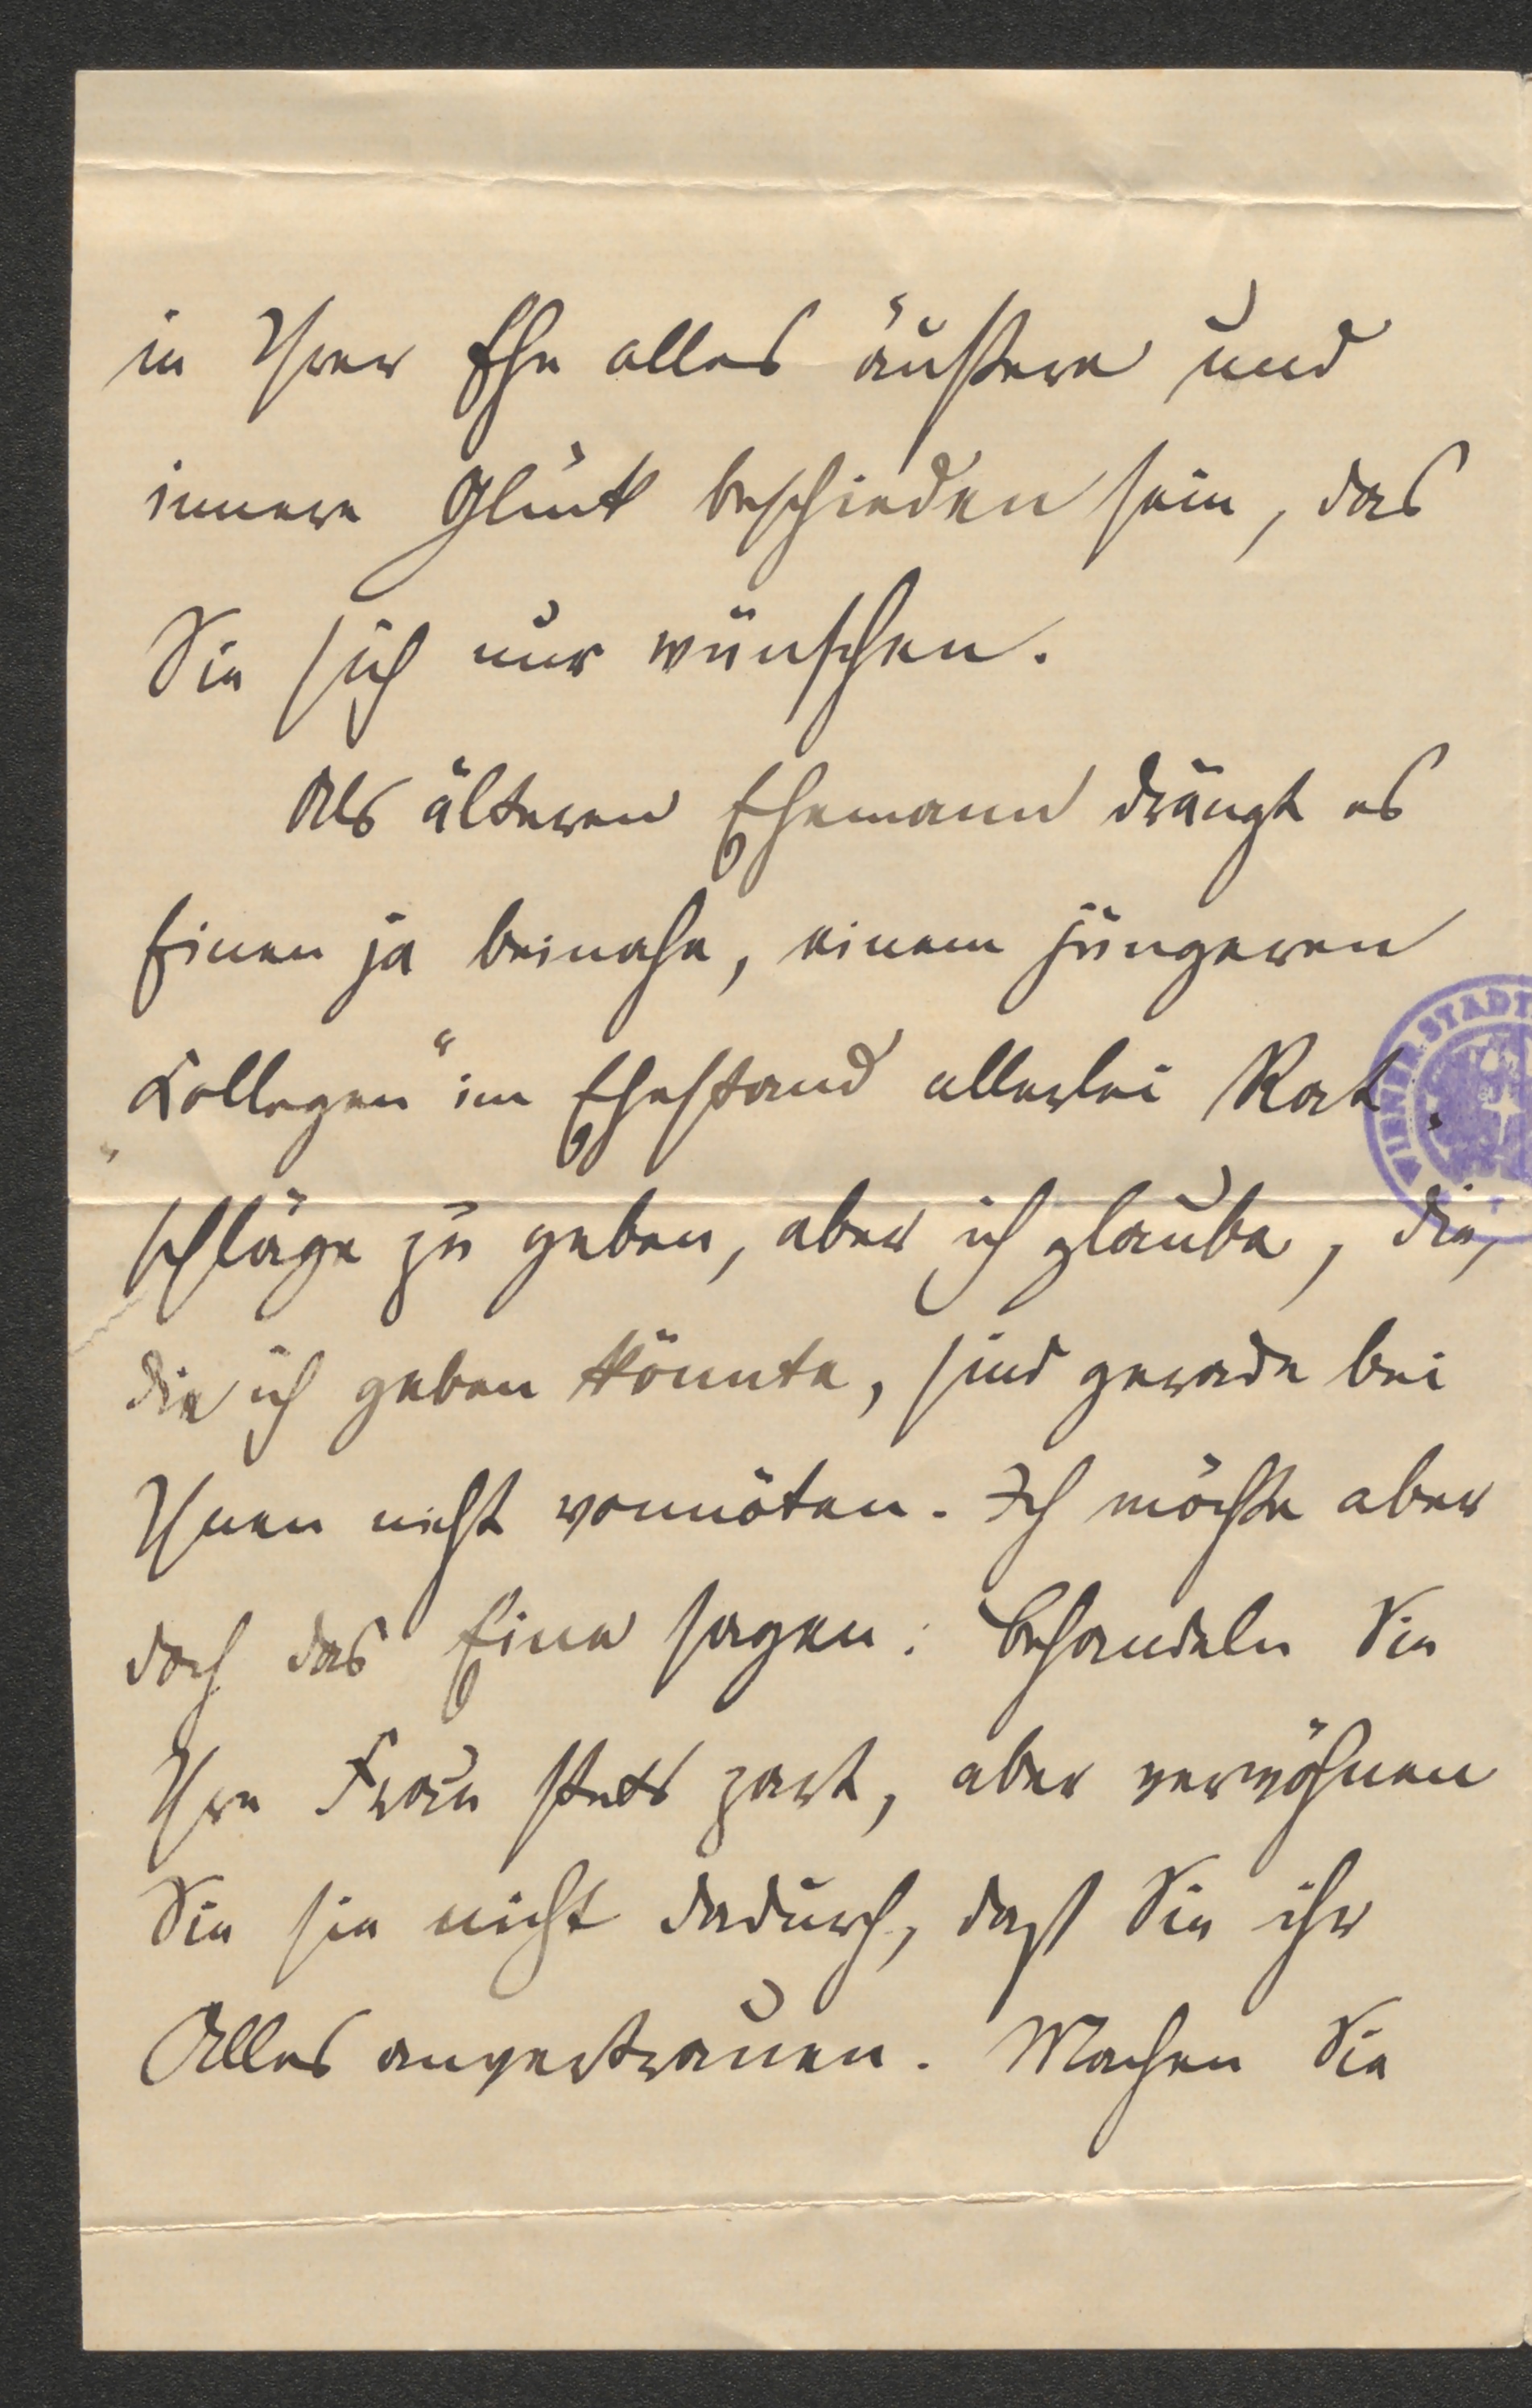 in Ihrer Ehe alles äußere und
innere Glück beschieden sein, das
Sie sich nur wünschen.
Als älteren Ehemann drängt es
Einen ja beinahe, einem jüngeren
„Kollegen“ im Ehestand allerlei Rat-
schläge zu geben, aber ich glaube, die,
die ich geben könnte, sind gerade bei
Ihnen nicht vonnöten. Ich möchte aber
doch das Eine sagen: Behandeln Sie
Ihre Frau stets zart, aber verwöhnen
Sie sie nicht dadurch, daß Sie ihr
Alles anvertrauen. Machen Sie
WIENER STADT